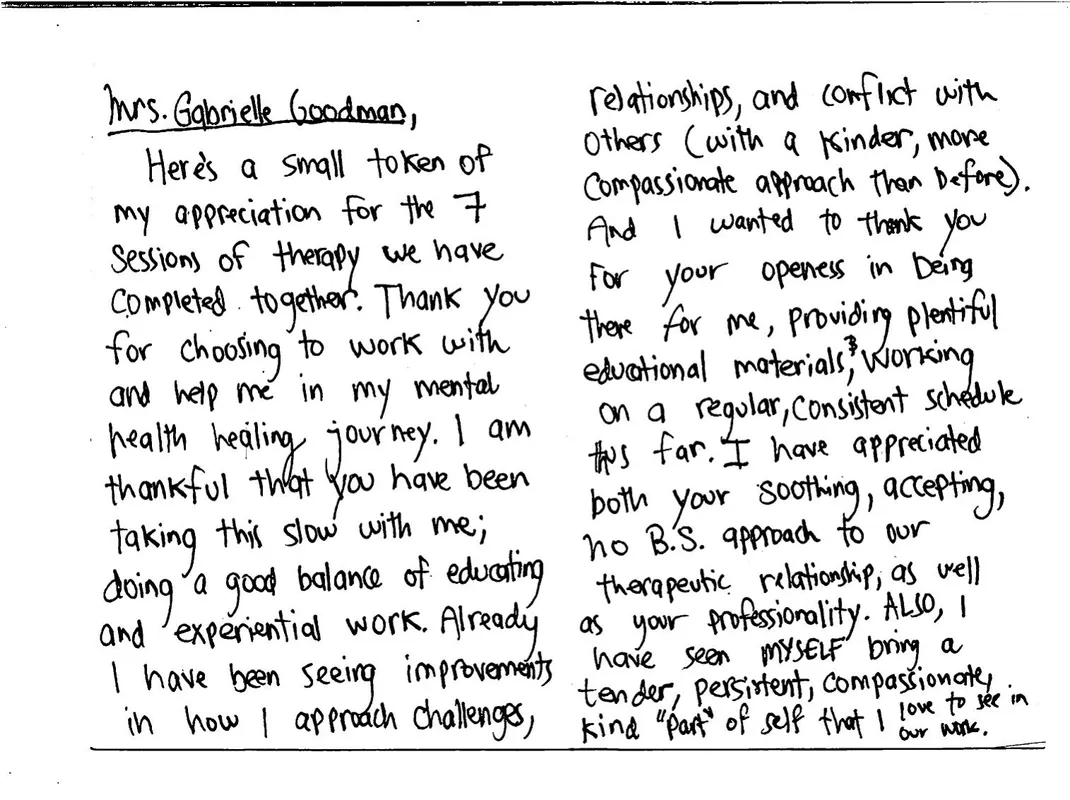 Mrs. Gabrielle Goodman,
Here's a small token of
my appreciation for the 7
sessions of therapy we have
completed together. Thank you
for choosing to work with
and help me in my mental
health healing journey. I am
thankful that you have been
taking this slow with me;
doing a good balance of educating
and experiential work. Already
I have been seeing improvements
in how I approach challenges,
relationships, and conflict with
others (with a kinder, more
compassionate approach than before).
And I wanted to thank you
for your openess in being
there for me, providing plentiful
educational materials, & working
on a regular, consistent schedule
thus far. I have appreciated
both your soothing, accepting,
no B.S. approach to our
therapeutic relationship, as well
as your professionality. ALSO, I
have seen MYSELF bring a
tender, persistent, compassionate,
kind "part" of self that I love to see in
our work.